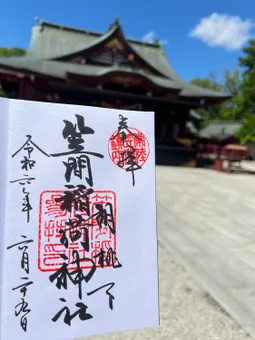 奉拝
胡桃下
笠間稲荷神社
令和六年 六月二十九日